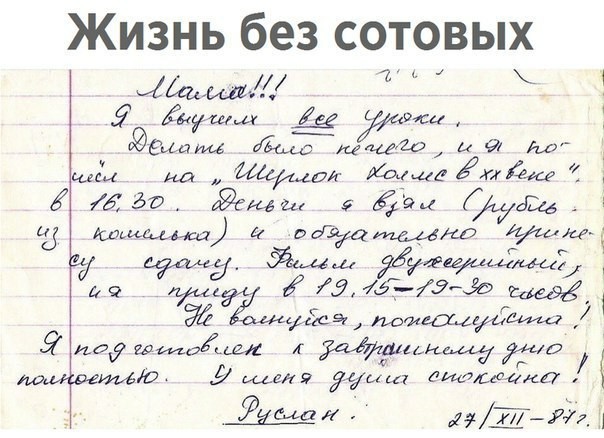 Жизнь без сотовых
Мама!!!
Я выучил все уроки.
Делать было нечего, и я по-
шёл на „Шерлок Холмс в XX веке",
в 16.30. Деньги я взял (рубль
из кошелька) и обязательно прине-
су сдачу. Фильм двухсерийный,
и я приду в 19.15-19-30 часов.
Не волнуйся, пожалуйста!
Я подготовлен к завтрашнему дню
полностью. У меня душа спокойна!
Руслан. 27/XII-87г.